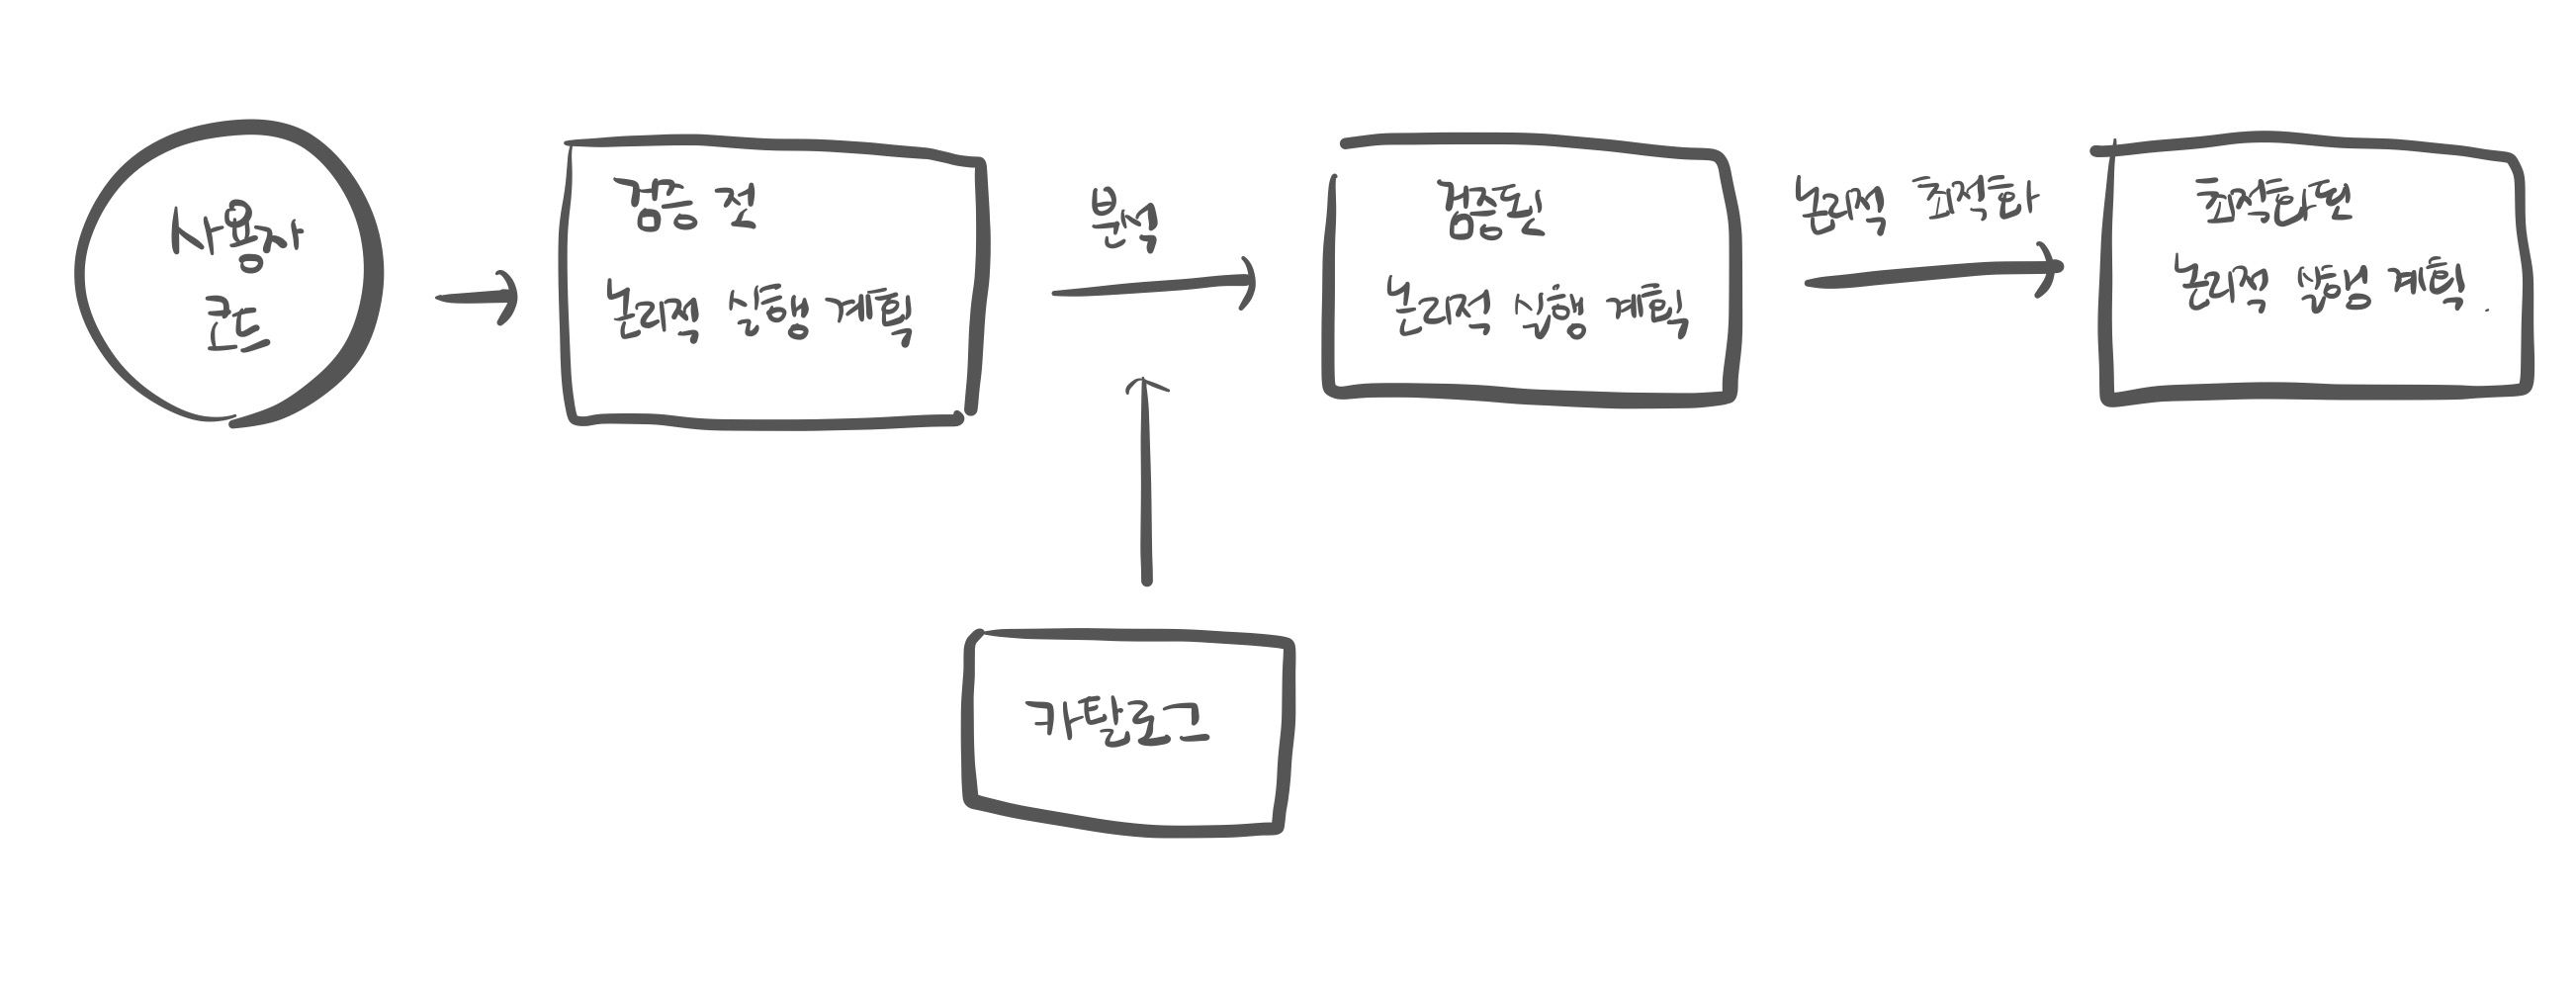 사용자
코드
검증 전
논리적 실행 계획
분석
검증된
논리적 실행 계획
논리적 최적화
최적화된
논리적 실행 계획.
카탈로그